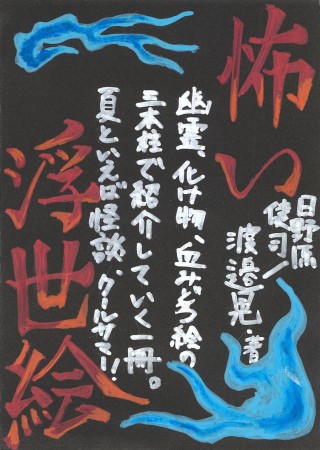 怖い
浮世絵
日野原
健司/
渡邉晃・著
幽霊、化け物、血みどろ絵の
三本柱で紹介していく一冊。
夏といえば怪談、クールサマー!!